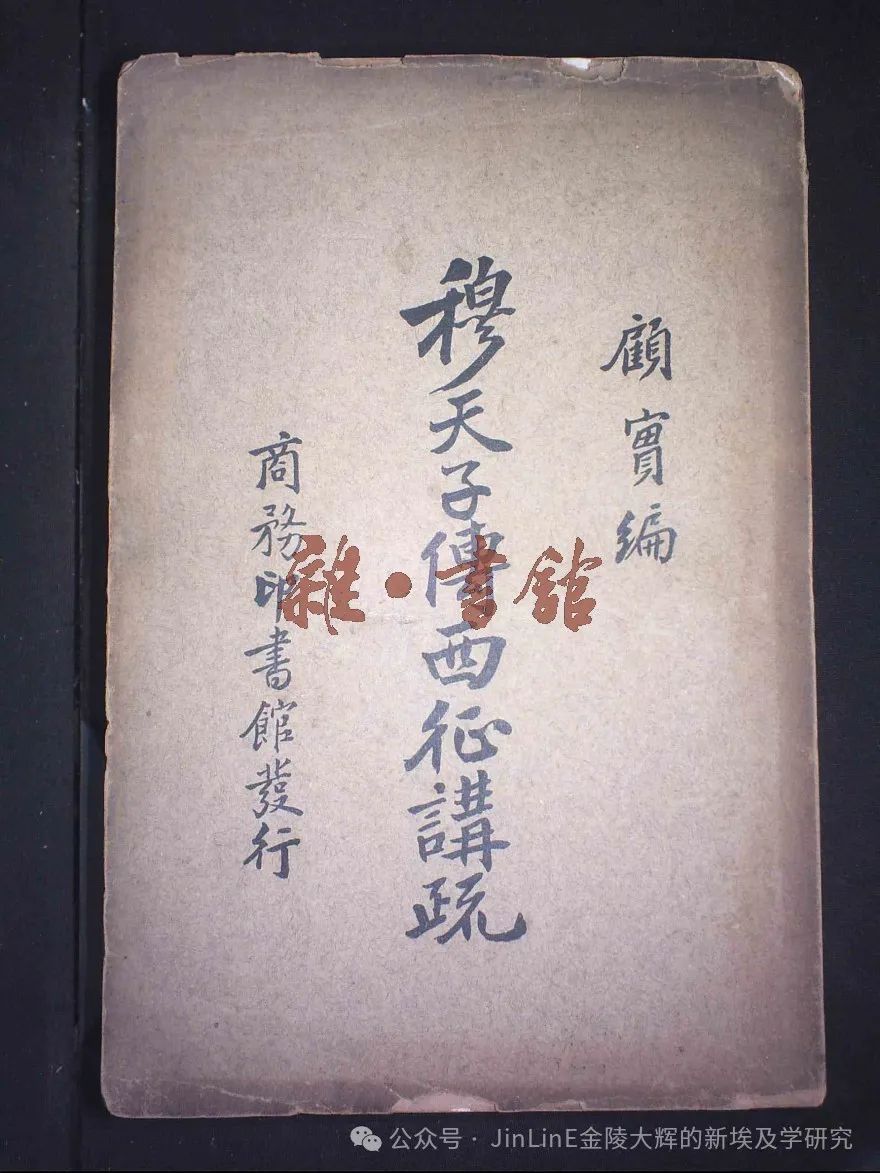 顧實編
穆天子傳西征講疏
商務印書館發行
雜·書館
公众号 · JinLinE金陵大辉的新埃及学研究